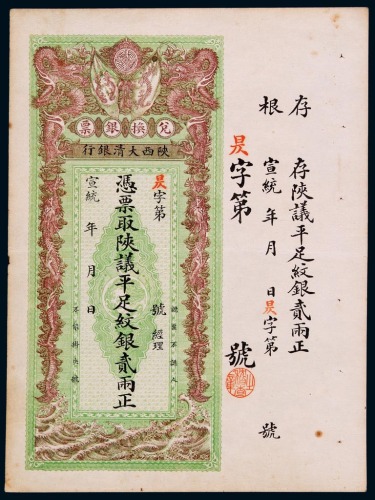 存根
存陝議平足紋銀貳兩正
宣統 年 月 日昃字第 號
昃字第 號
兌換銀票
陝西大清銀行
昃字第 號 經理
憑票取陝議平足紋銀貳兩正
宣統 年 月 日
認票不認人
不掛失號